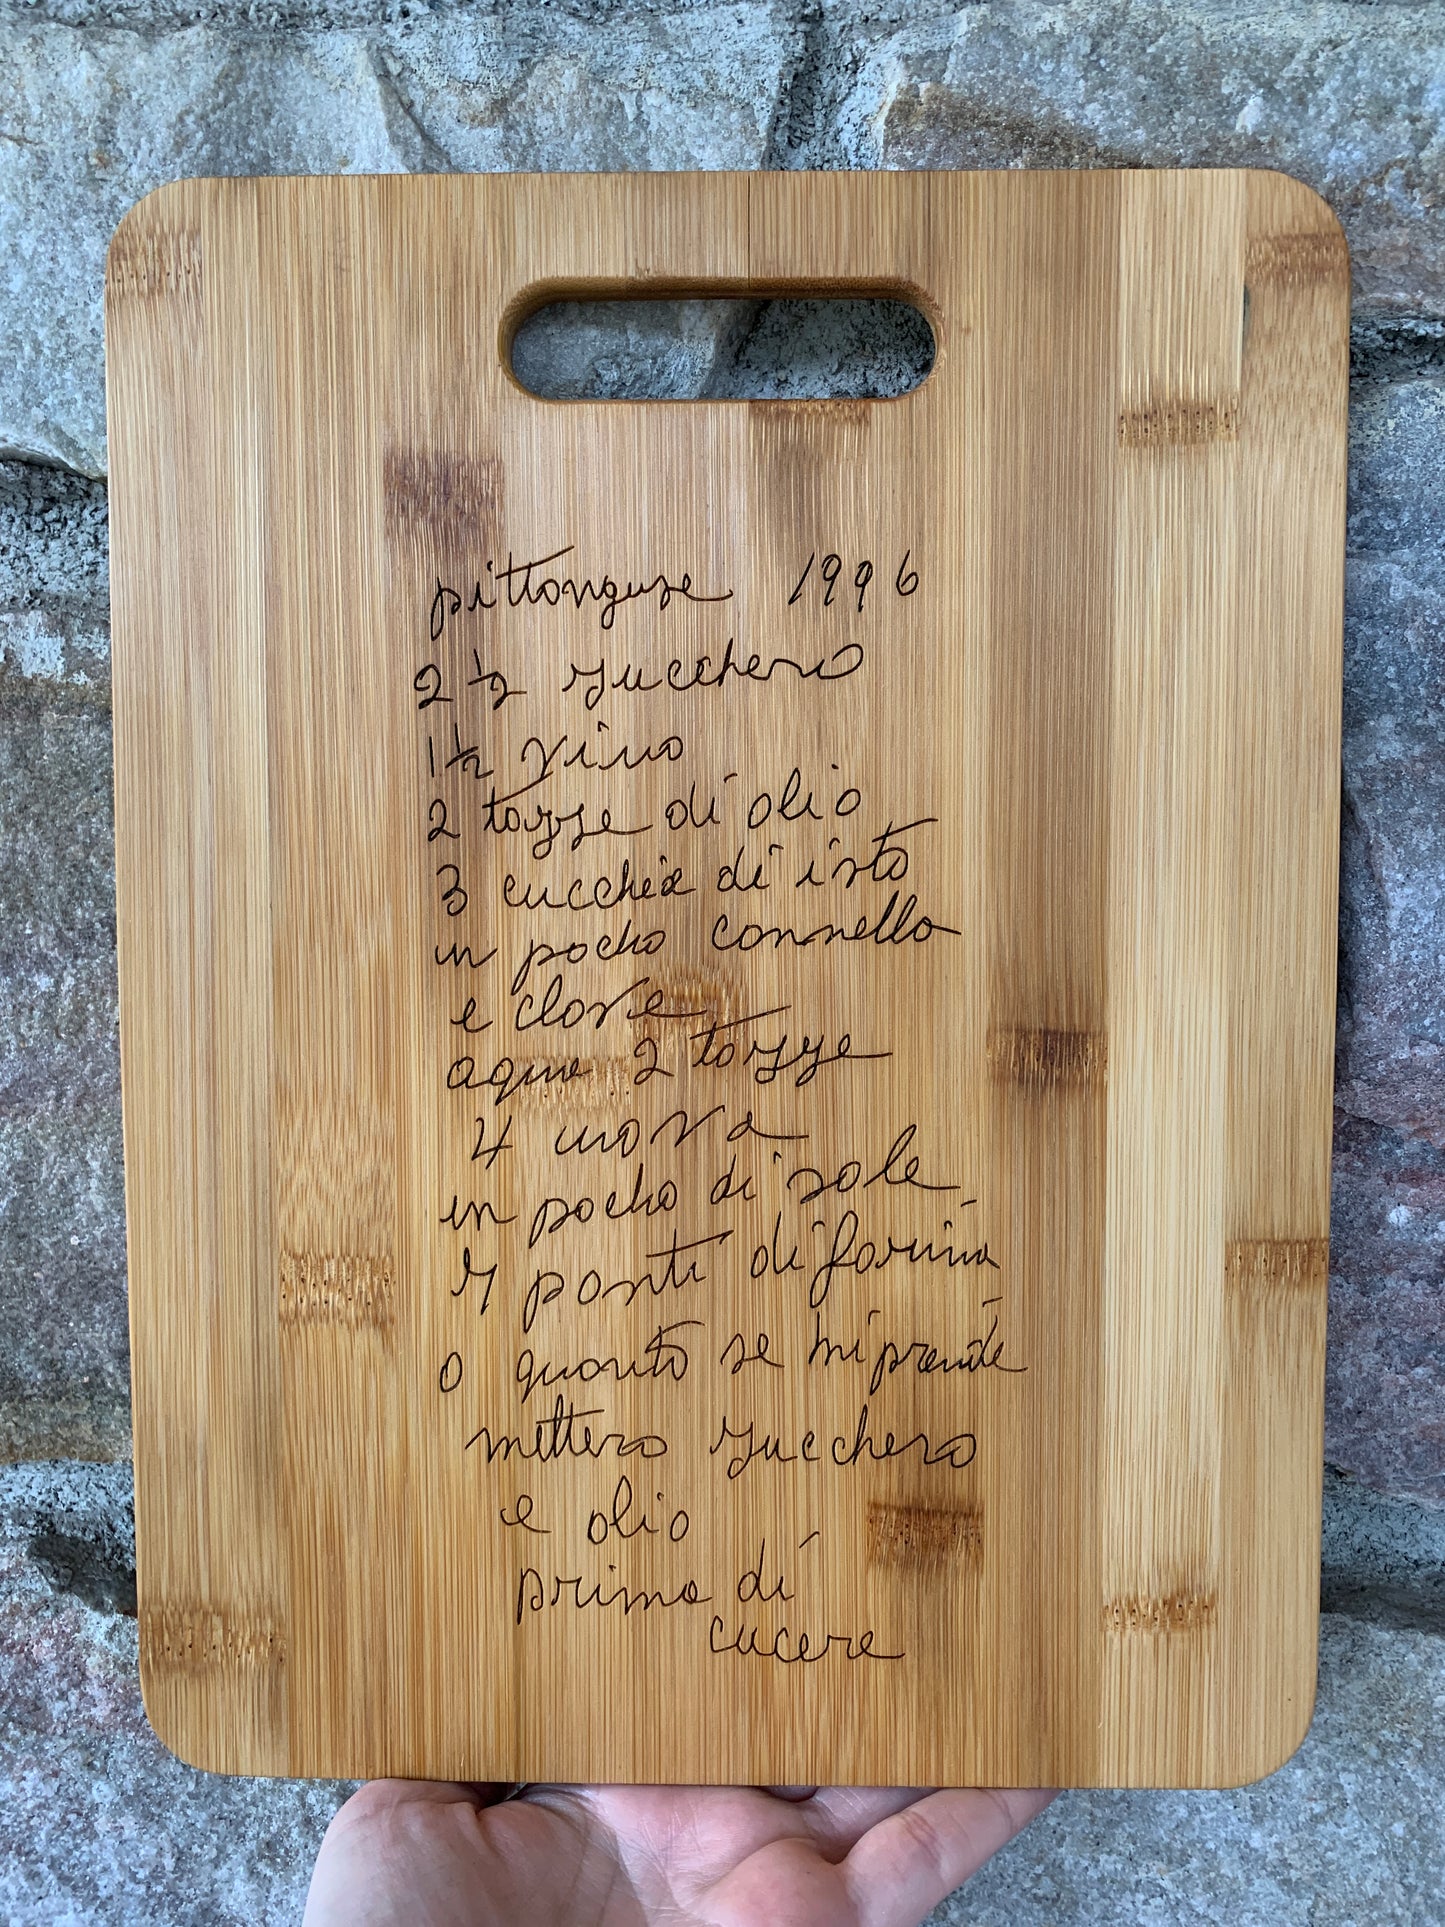 pittonguse 1996
2 ½ zucchero
1 ½ vino
2 tazze di olio
3 cucchia di isto
un pocho connella
e clove
aqua 2 tazze
4 uova
un pocho di sole
7 ponti di farina
o quanto se mi prende
mettero zucchero
e olio
prima di
cucere